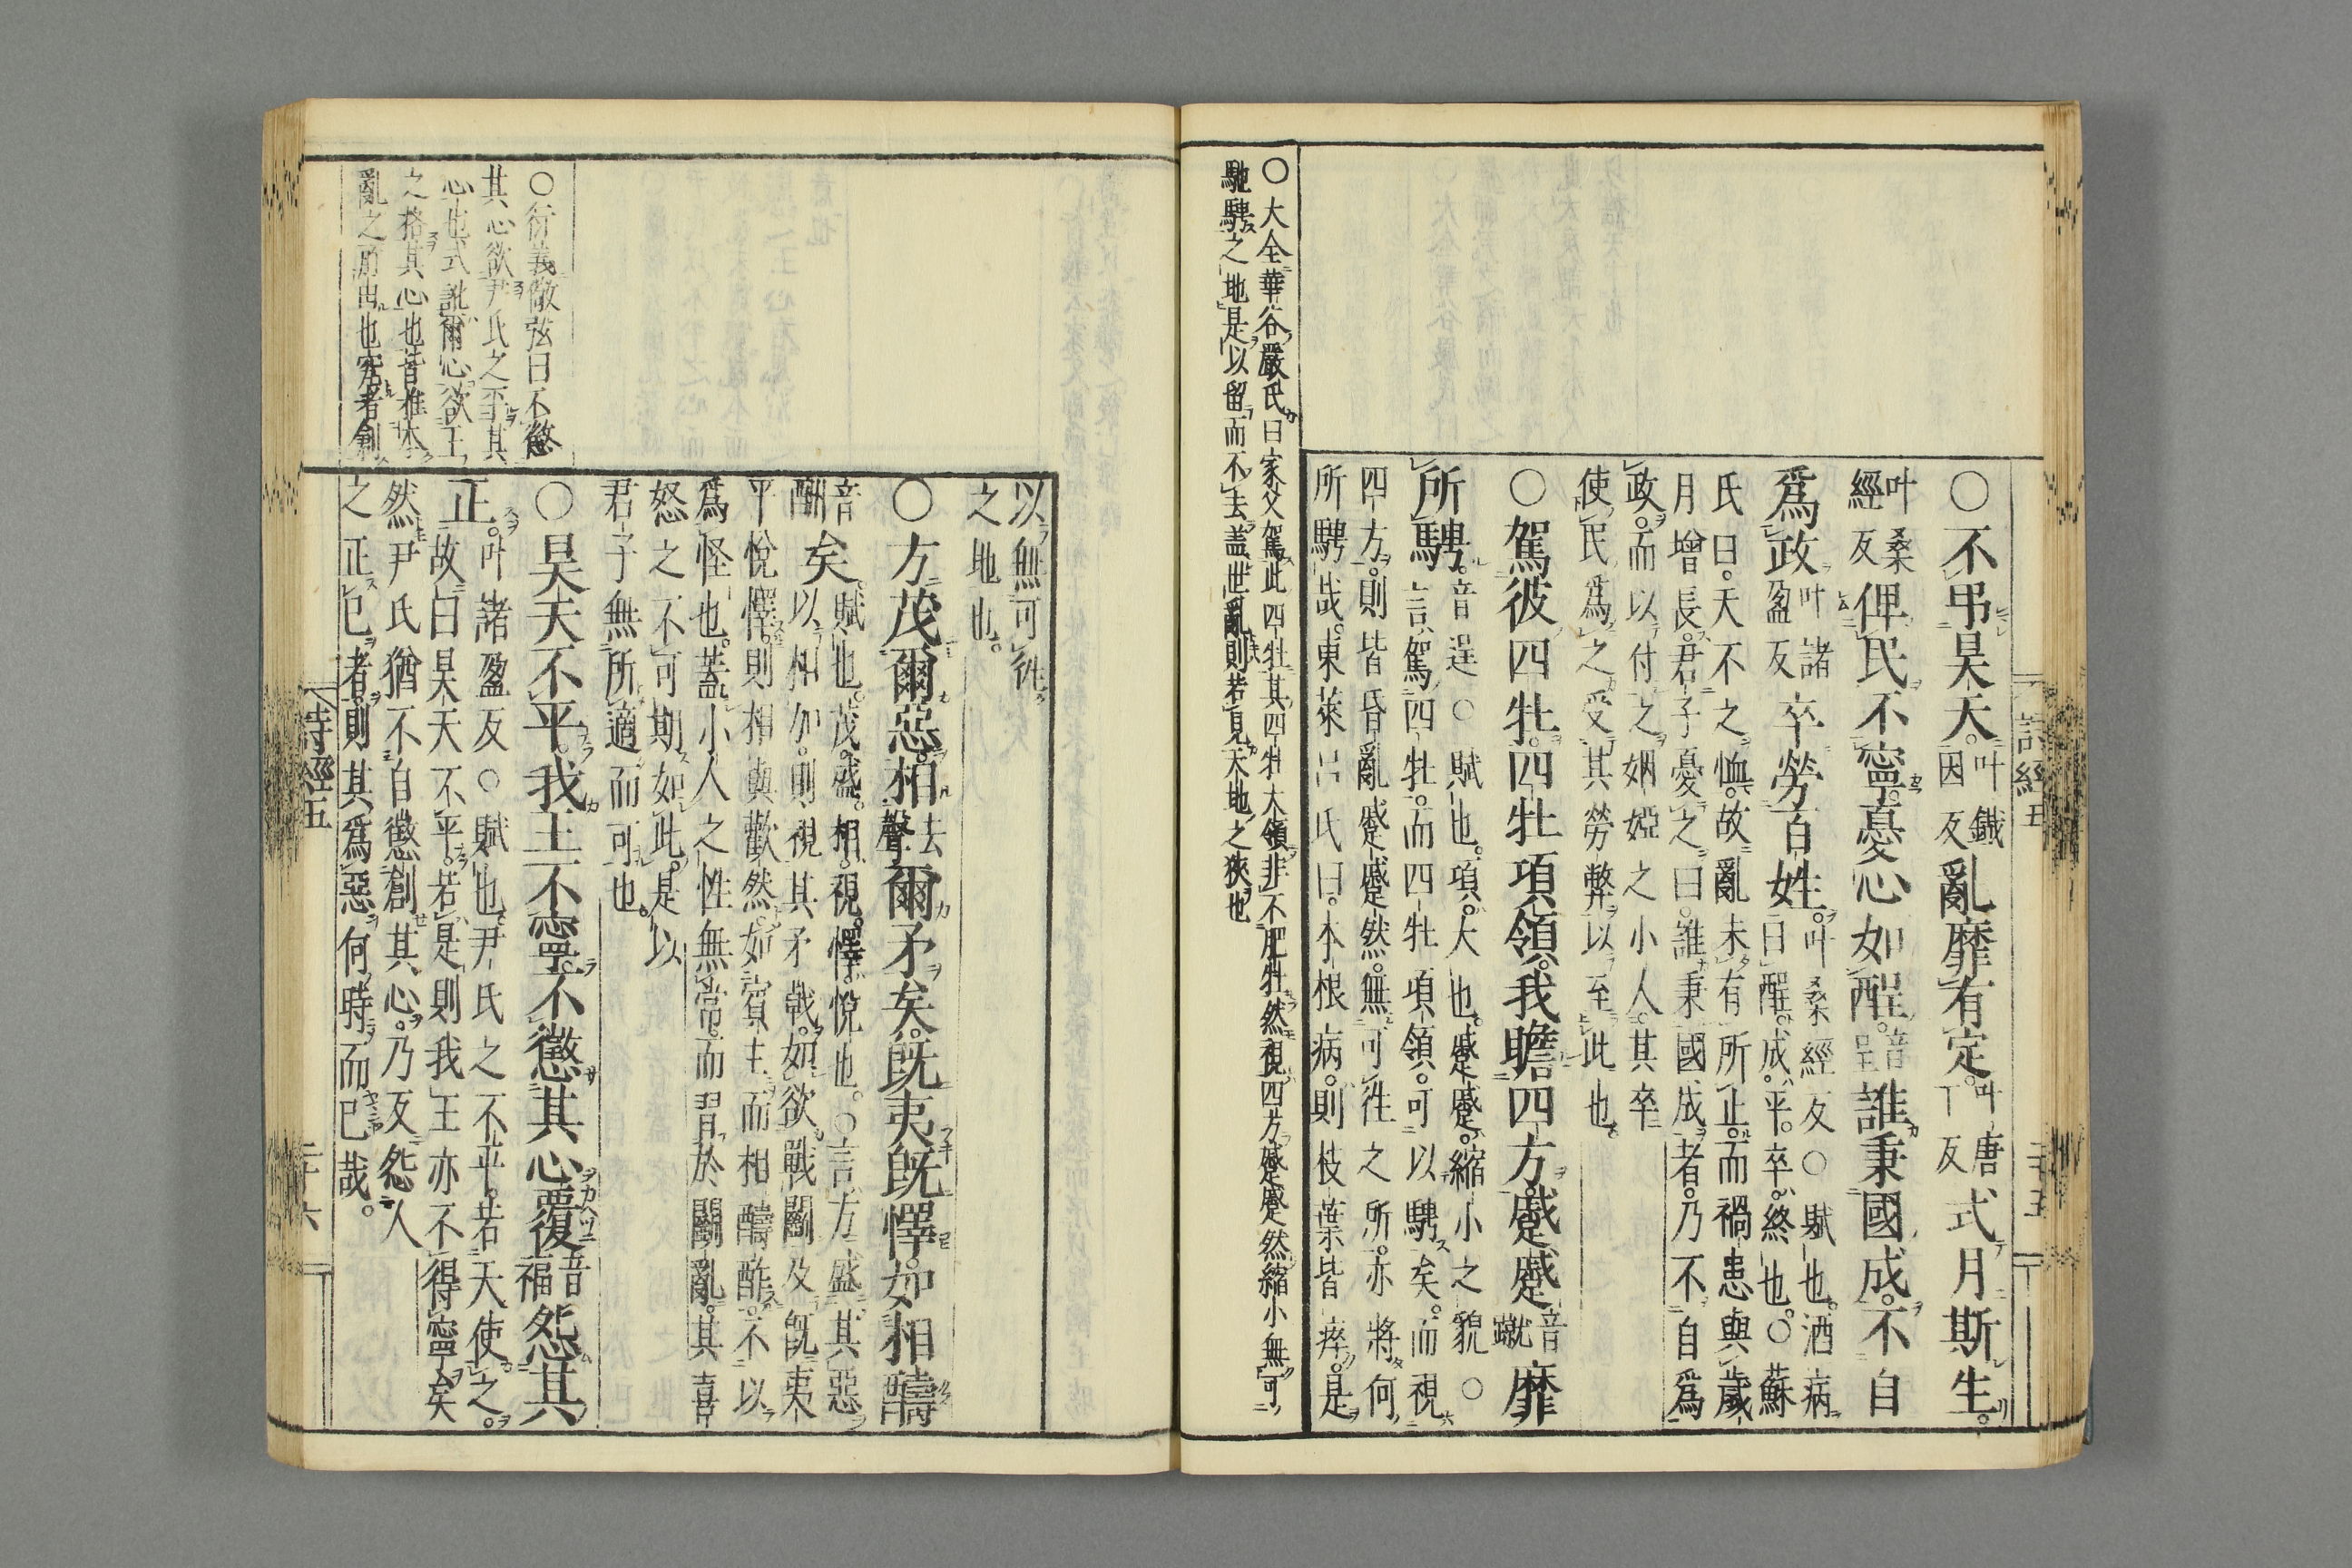 詩經五 二十五
○不弔昊天。叶鐵因反亂靡有定。叶唐丁反式月斯生。
叶桑經反俾民不寧。憂心如酲。音呈誰秉國成。不自
爲政叶諸盈反卒勞百姓。叶桑經反○賦也。酒病
曰酲。成。平。卒。終也。○蘇
氏曰。天不之恤。故亂未有所止。而禍患與歲
月增長。君子憂之曰。誰秉國成者。乃不自爲
政。而以付之姻婭之小人。其卒
使民爲之受其勞弊以至此也。
○駕彼四牡。四牡項領。我瞻四方。蹙蹙音蹴靡
所騁。音逞○賦也。項。大也。蹙蹙。縮小之貌○
言駕四牡。而四牡項領。可以騁矣。而視
四方。則皆昏亂蹙蹙然。無可往之所。亦將何
所騁哉。東萊呂氏曰。本根病。則枝葉皆瘁。是
○大全華谷嚴氏曰家父駕此四牡其四牡大領非不肥牡然視四方蹙蹙然縮小無可
馳騁之地是以留而不去蓋世亂則若見天地之狹也
以無可往
之地也。
○方茂爾惡。相去聲爾矛矣。旣夷旣懌。如相醻
音酬矣。賦也。茂。盛。相。視。懌。悅也。○言方盛其惡
以相加。則視其矛戟。如欲戰鬭。及旣夷
平悅懌。則相與歡然。如賓主而相醻酢。不以
爲怪也。蓋小人之性無常。而習於鬭亂。其喜
怒之不可期如此。是以
君子無所適而可也。
○昊天不平。我王不寧。不懲其心。覆音福怨其
正。叶諸盈反○賦也。尹氏之不平。若天使之。
故曰昊天不平。若是則我王亦不得寧矣
然尹氏猶不自懲創其心。乃反怨人
之正已者。則其爲惡何時而已哉。
○衍義敬弦曰不懲
其心欲尹氏之平其
心也式訛爾心欲王
之格其心也昔推本
亂之所由也究者創
詩經五 二十六